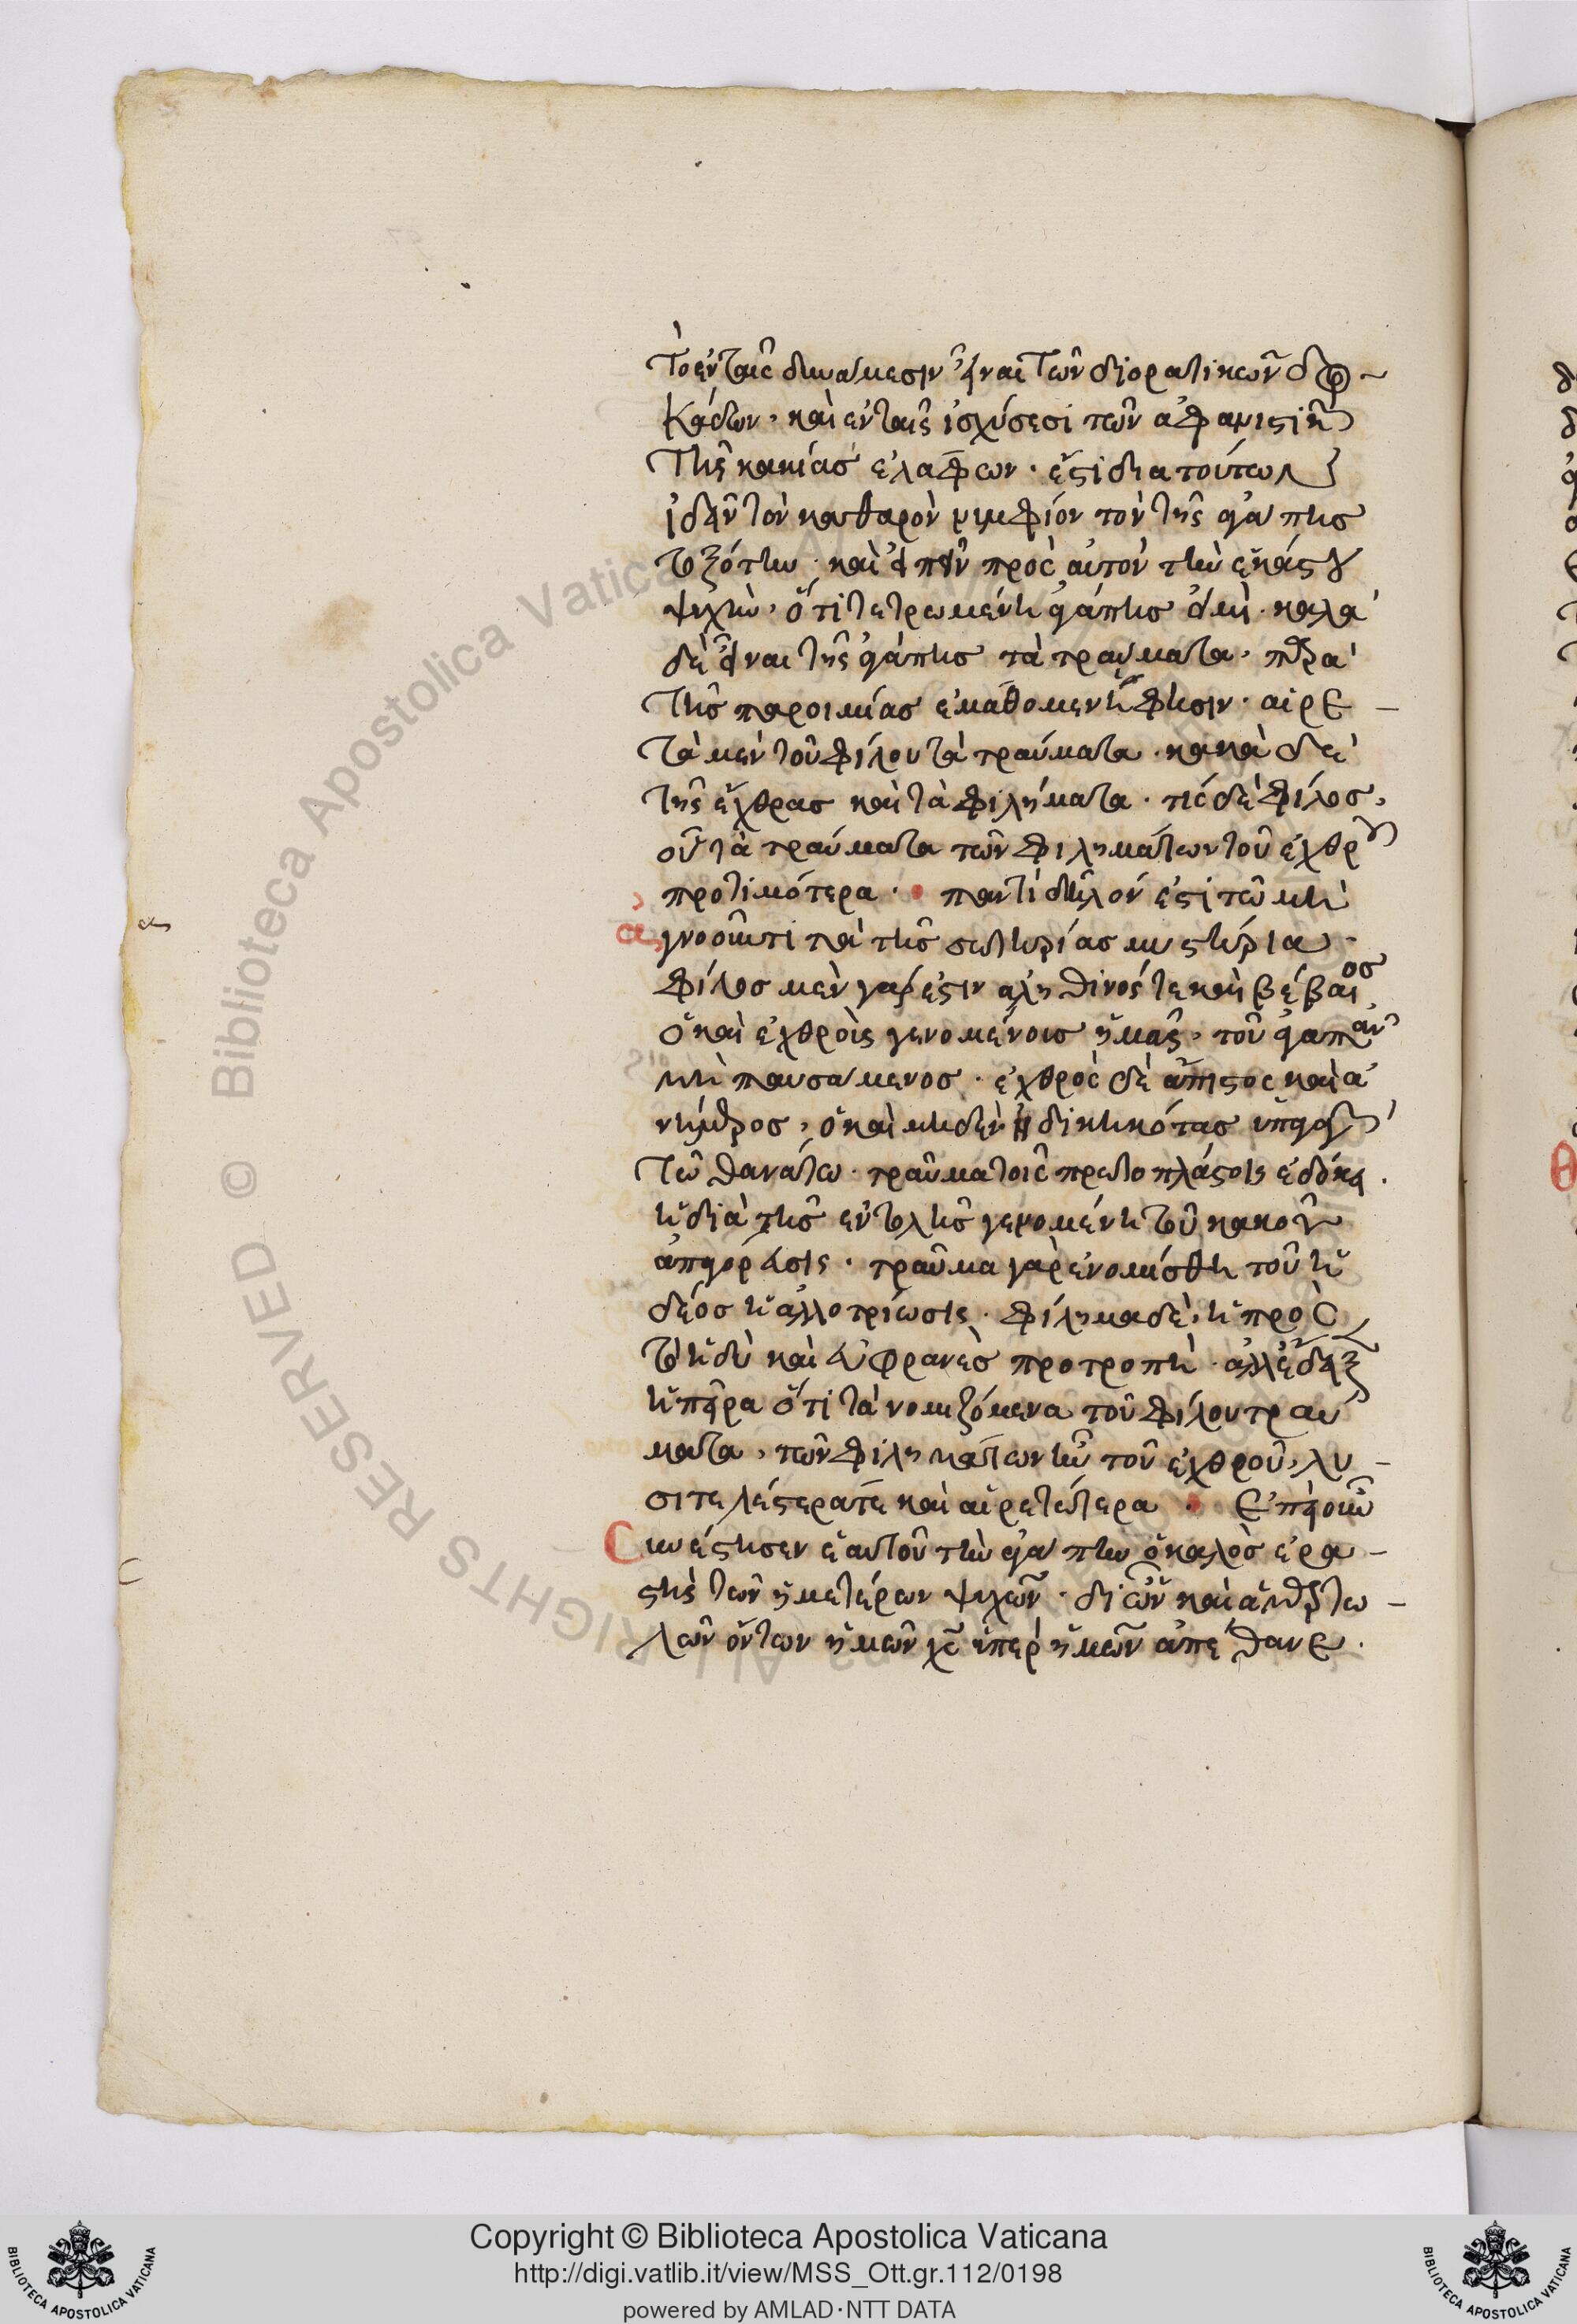 Τὸ ἐν ταῖς δυνάμεσιν εἶναι τῶν διορατικῶν δορ-
κάδων, καὶ ἐν ταῖς ἰσχύσεσι τῶν ἀφανιστικῶν
τῆς κακίας ἐλάφων. ἔστι διὰ τούτων
ἰδεῖν τὸν καθαρὸν νυμφίον τὸν τῆς ἀγάπης
τοξότην. καὶ εἰπεῖν πρὸς αὐτὸν τὴν ἑκάστου
ψυχὴν, ὅτι τετρωμένη ἀγάπης εἰμὶ. καλὰ
δὲ εἶναι τῆς ἀγάπης τὰ τραύματα, παρὰ
τῆς παροιμίας ἐμάθομεν ἥ φησιν. αἱρε-
τὰ μὲν τοῦ φίλου τὰ τραύματα. κακὰ δὲ
τῆς ἔχθρας καὶ τὰ φιλήματα. τίς δὲ φίλος,
οὗ τὰ τραύματα τῶν φιλημάτων τοῦ ἐχθροῦ
προτιμότερα. παντὶ δῆλόν ἐστι τῷ μὴ
ἀγνοοῦντι τὰ τῆς σωτηρίας μυστήρια.
φίλος μὲν γάρ ἐστιν ἀληθινός τε καὶ βέβαιος
ὁ καὶ ἐχθροῖς γενομένοις ἡμᾶς, τοῦ ἀγαπᾶν
μὴ παυσάμενος. ἐχθρὸς δὲ ἄπιστος καὶ ἀ
νήμερος, ὁ καὶ μηδὲν ἠδικηκότας ὑπαγαγὼν
τῷ θανάτῳ. τραῦμα τοῖς πρωτοπλάστοις ἐδόκει.
ἡ διὰ τῆς ἐντολῆς γενομένη τοῦ κακοῦ
ἀπαγόρευσις. τραῦμα γὰρ ἐνομίσθη τοῦ ἡ
δέος ἡ ἀλλοτρίωσις. φίλημα δὲ, ἡ πρὸς
τὸ ἡδὺ καὶ εὐφρανὲς προτροπὴ. ἀλλ' ἔδειξεν
ἡ πεῖρα ὅτι τὰ νομιζόμενα τοῦ φίλου τραύ
ματα, τῶν φιλημάτων ἦν τοῦ ἐχθροῦ, λυ-
σιτελέστερά τε καὶ αἱρετώτερα. Ἐπεὶ οὖν
Συνέστησεν ἑαυτοῦ τὴν ἀγάπην ὁ καλὸς ἐρα-
στὴς τῶν ἡμετέρων ψυχῶν. δι' ὧν καὶ ἁμαρτω-
λῶν ὄντων ἡμῶν χς ὑπὲρ ἡμῶν ἀπέθανε.
α
Copyright © Biblioteca Apostolica Vaticana
http://digi.vatlib.it/view/MSS_Ott.gr.112/0198
powered by AMLAD·NTT DATA
BIBLIOTECA APOSTOLICA VATICANA
BIBLIOTECA APOSTOLICA VATICANA